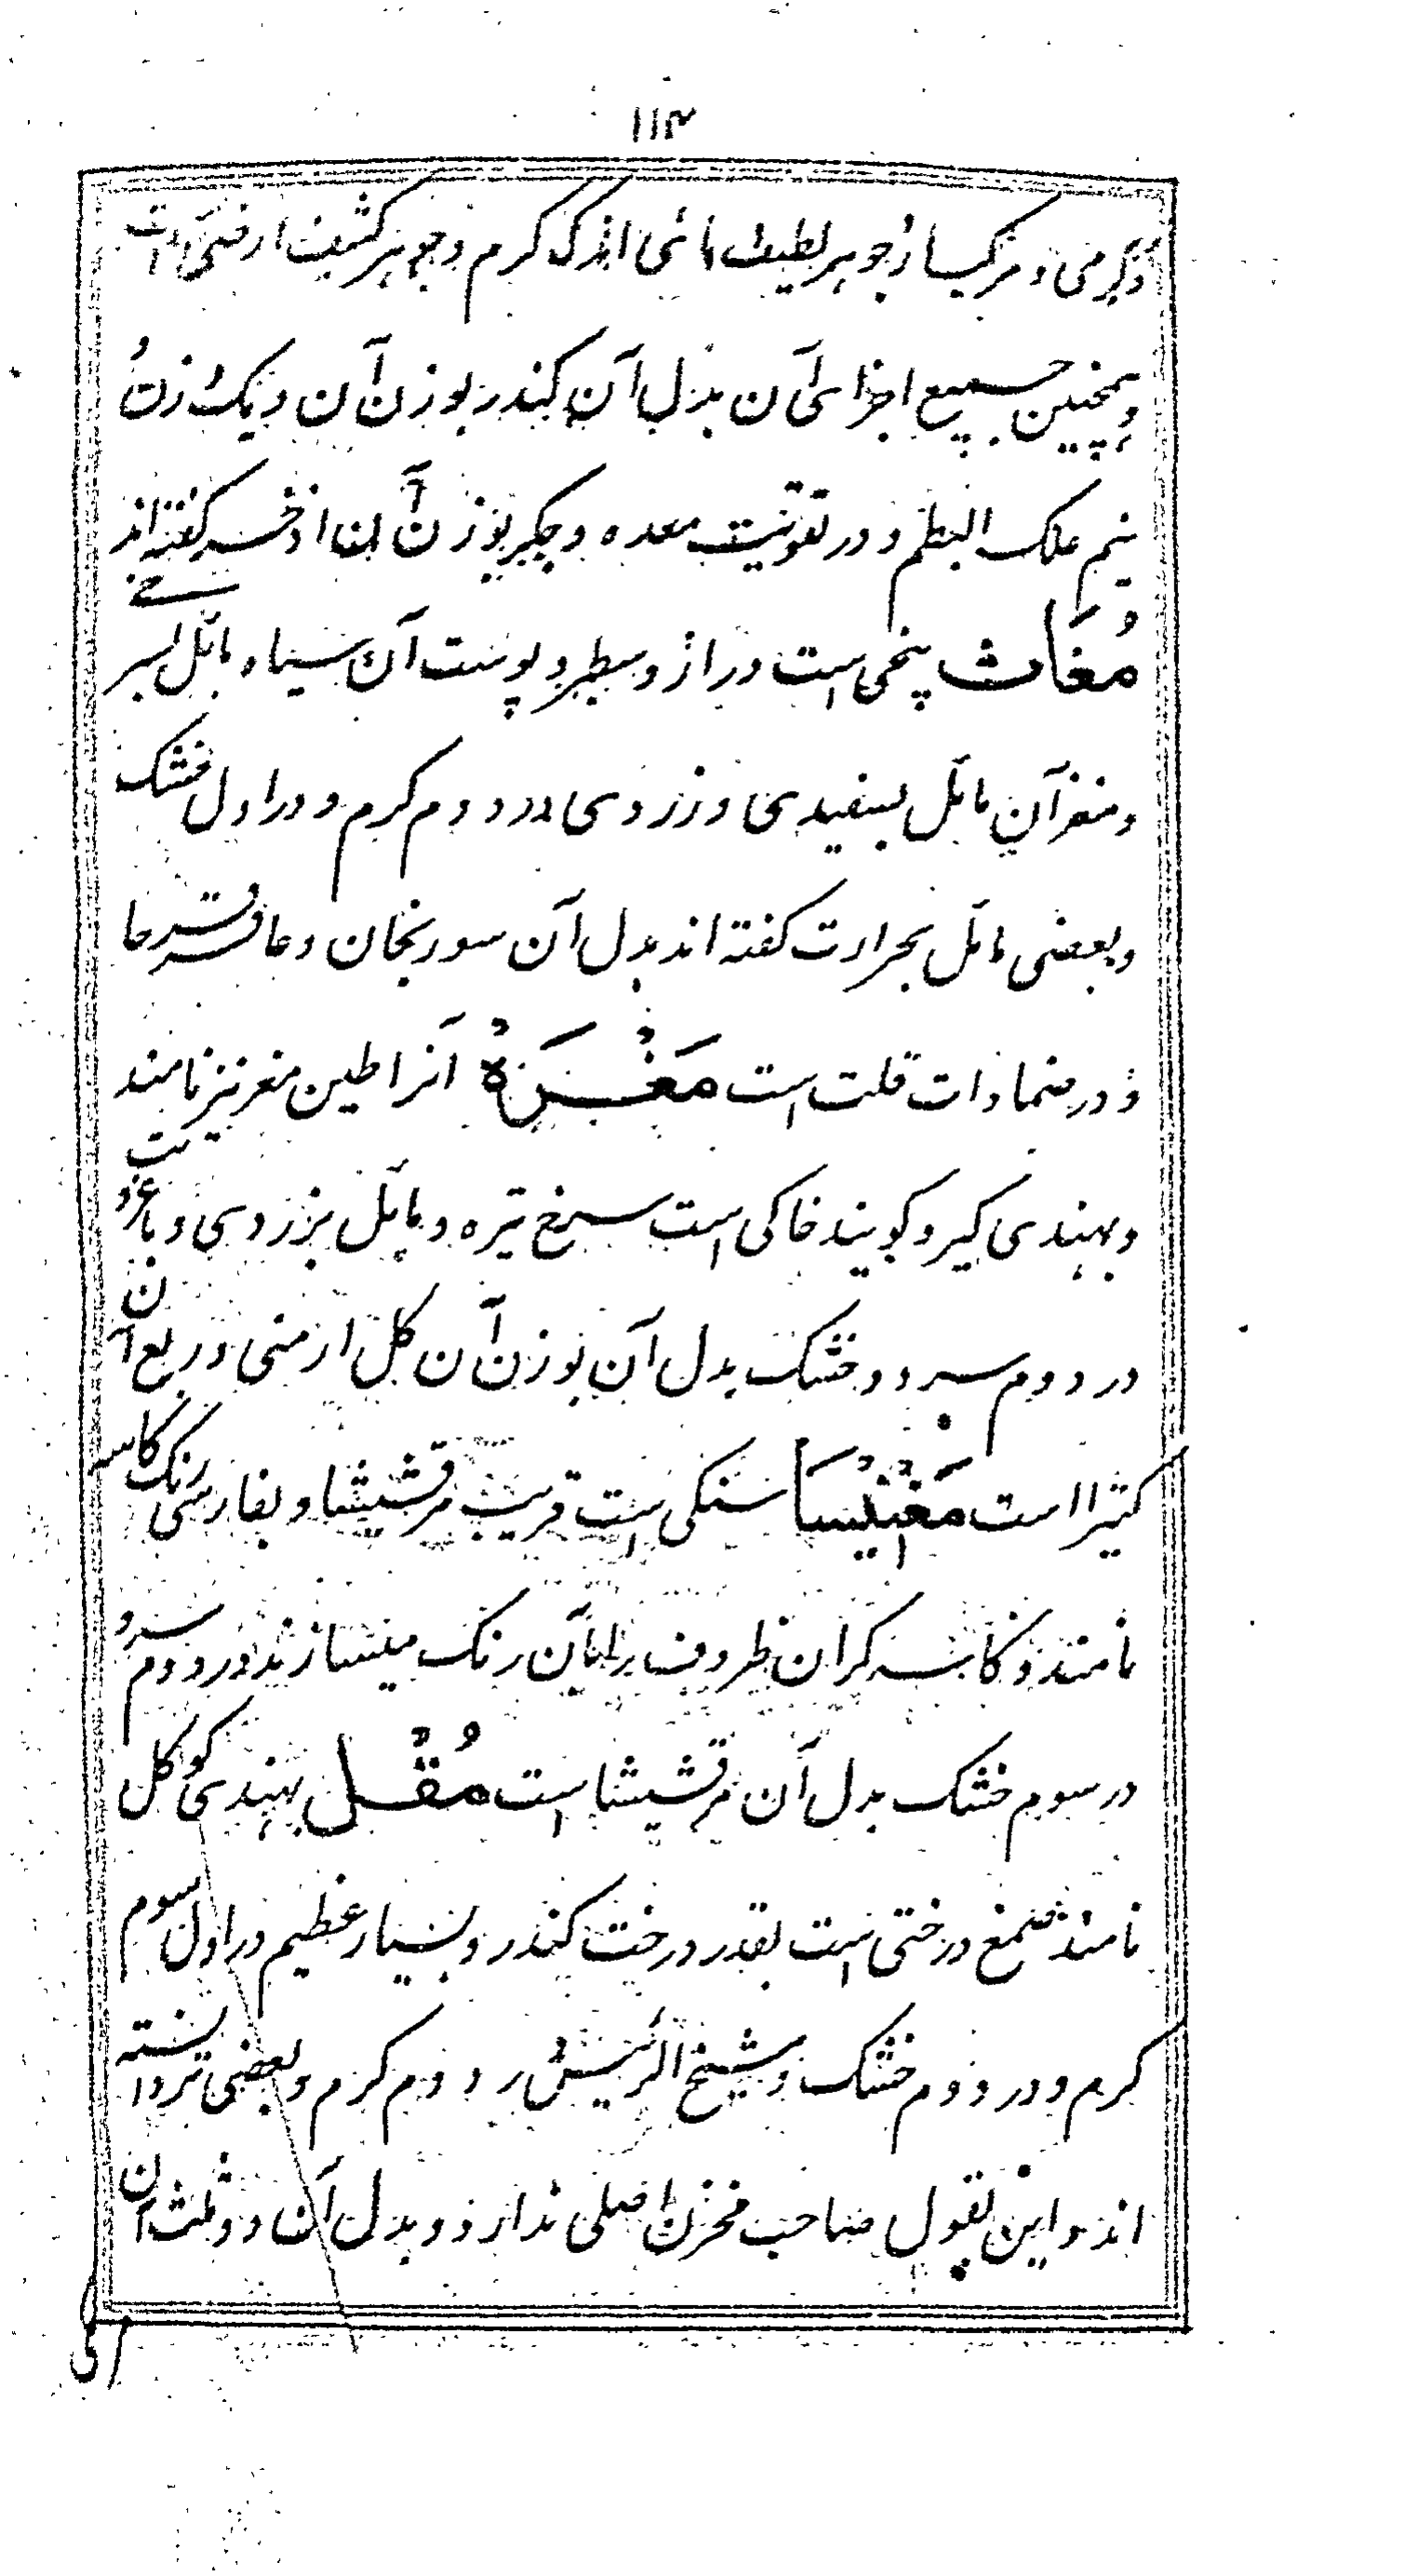 ۱۱۴
در گرمی و مرکب از جوهر لطیف مائی اندک گرم و جوهر کثیف ارضی است
و همچنین جمیع اجزای آن بدل آن کندر بوزن آن و یک وزن
نیم علک البطم و در تقویت معده و جگر بوزن آن اذخر گفته اند
مُغَاث بیخی است دراز و سطبر و پوست آن سیاه مائل بسرخی
و مغز آن مائل بسفیدی و زردی در دوم گرم و در اول خشک
و بعضی مائل بحرارت گفته اند بدل آن سورنجان و عاقرقرحا
و در ضمادات قلت است مَغْرَهْ آنرا طین مغر نیز نامند
و بهندی گیرو گویند خاکی است سرخ تیره و مائل بزردی و با غرویت
در دوم سرد و خشک بدل آن بوزن آن گل ارمنی و ربع آن
کتیرا است مَغْنِیْسَا سنگی است قریب مرقشیشا و بفارسی رنگ کاسه
نامند و کاسه گران ظروف را بآن رنگ میسازند در دوم سرد و
در سوم خشک بدل آن مرقشیشا است مُقْل بهندی گوگل
نامند صمغ درختی است بقدر درخت کندر و بسیار عظیم در اول سوم
گرم و در دوم خشک و شیخ الرئیس در دوم گرم و بعضی تر دانسته
اند و این بقول صاحب مخزن اصلی ندارد و بدل آن دو ثلث آن